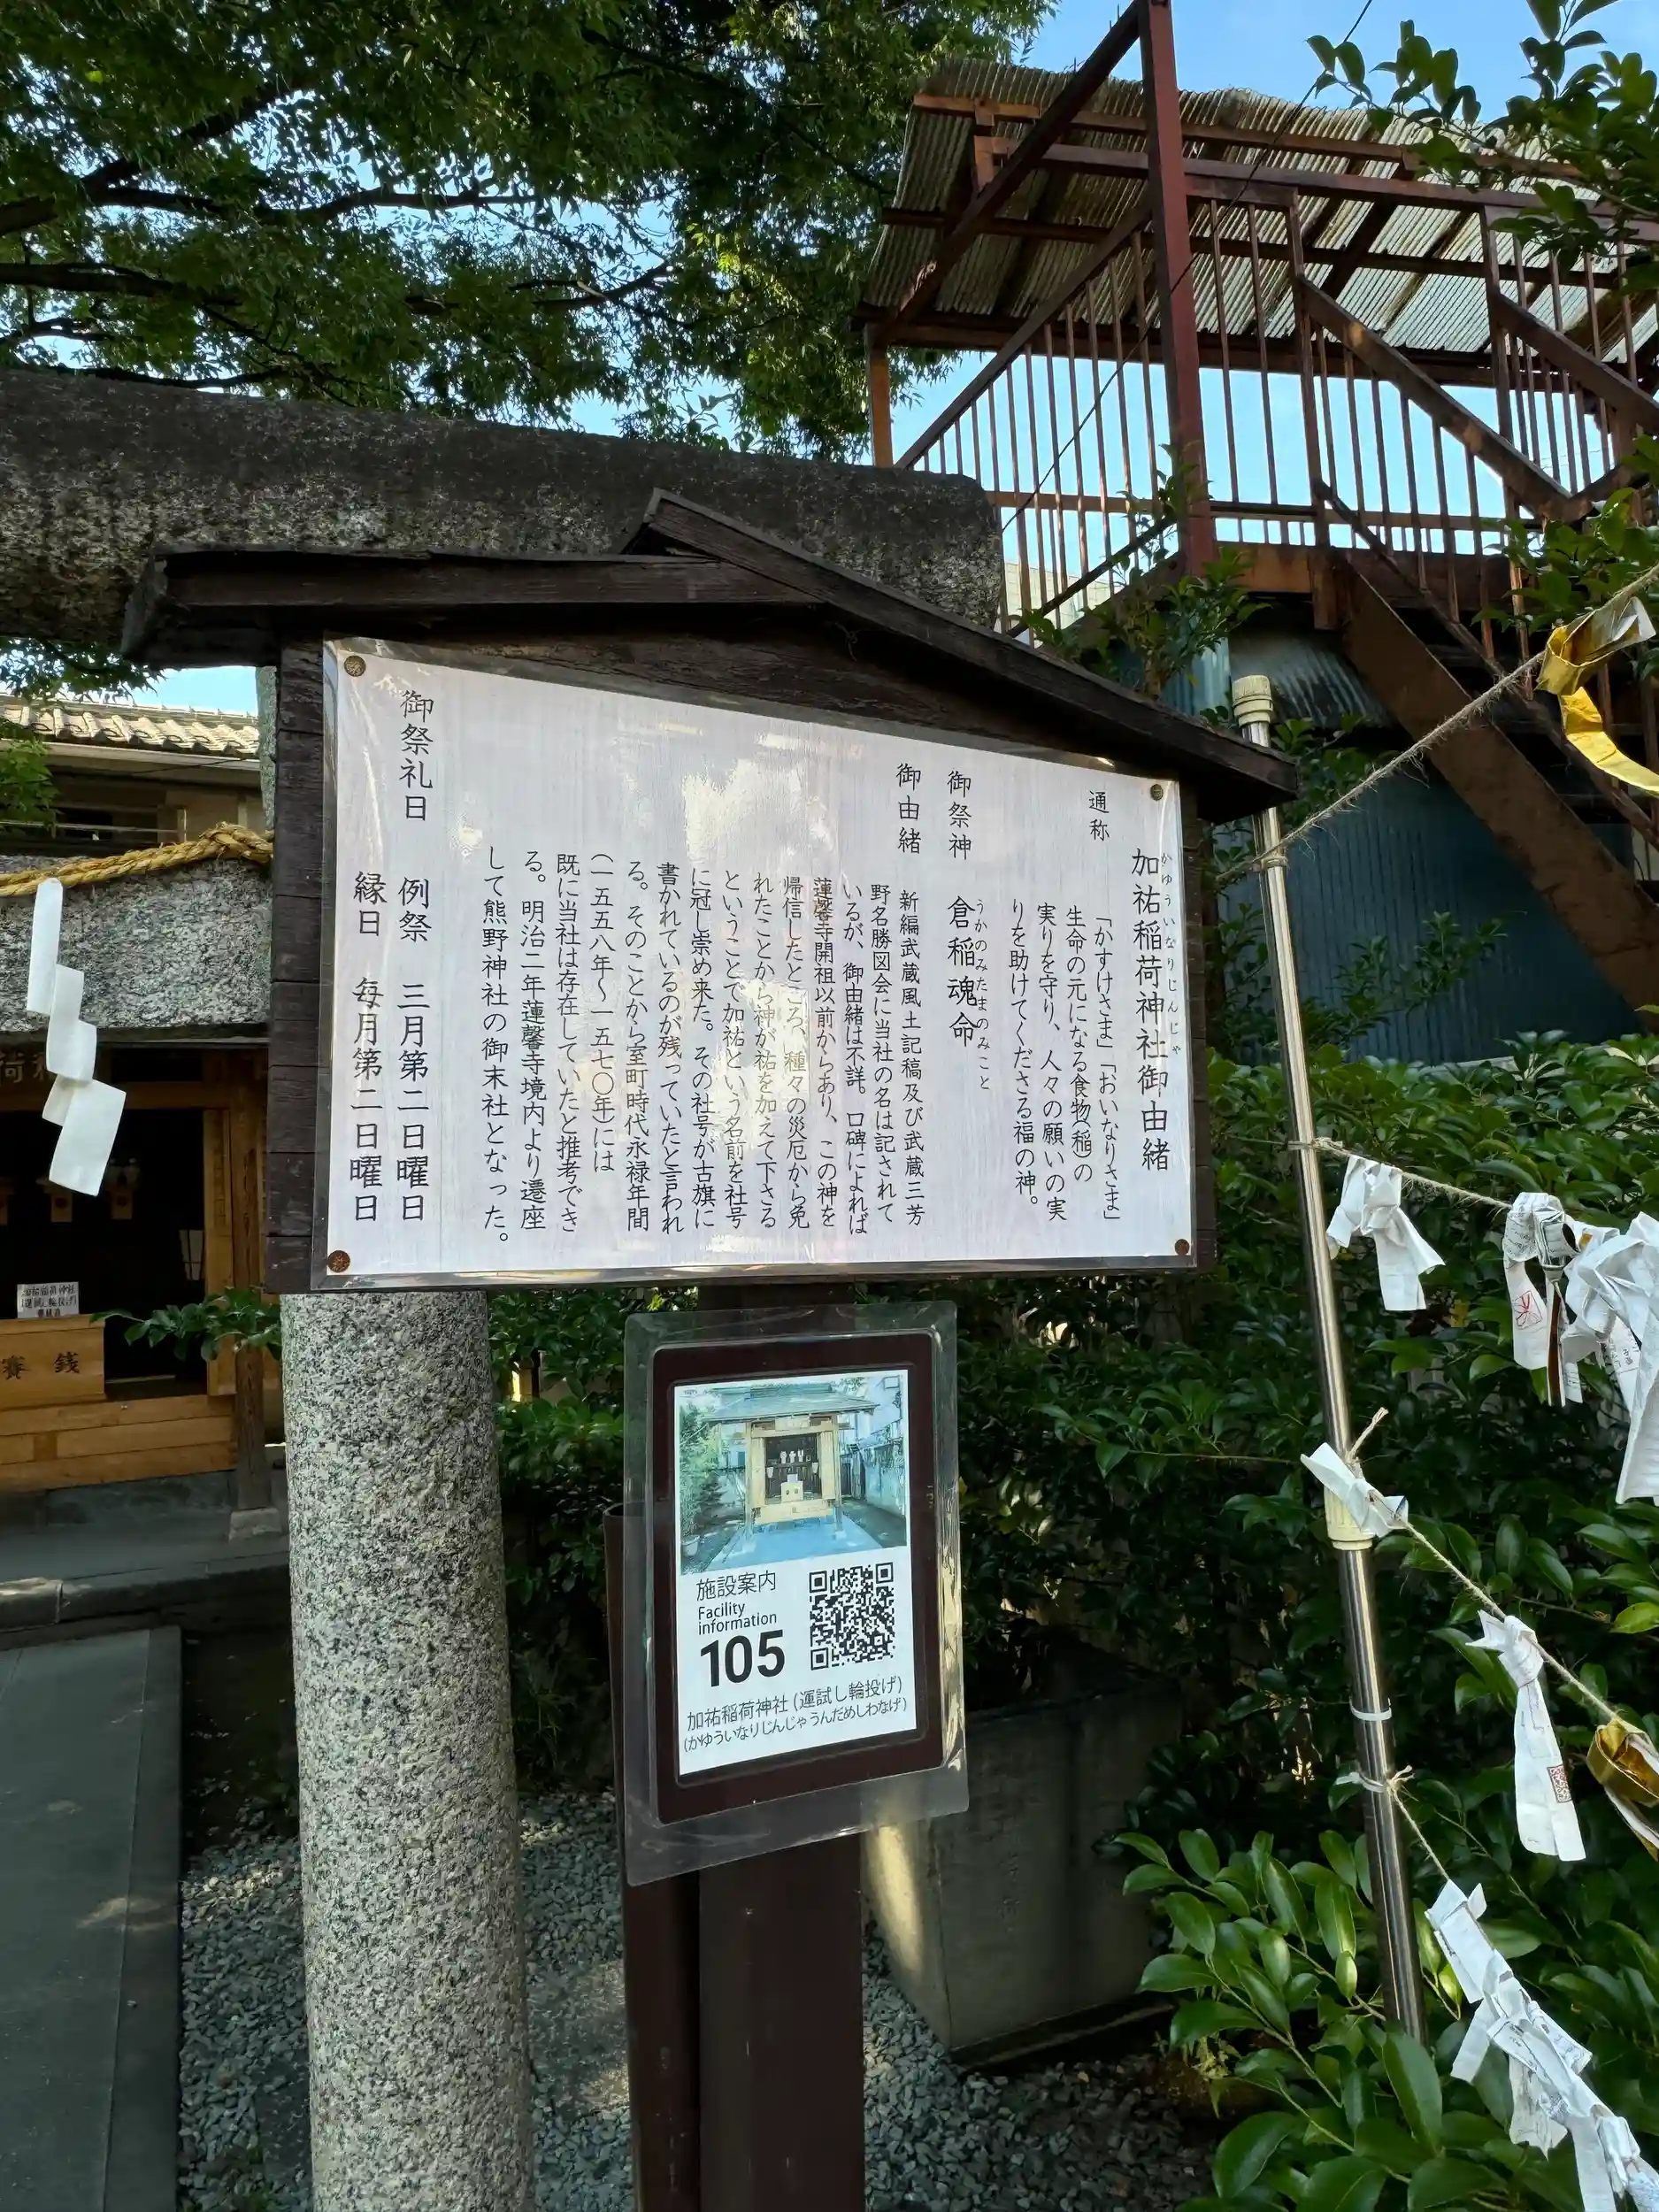 加祐稲荷神社御由緒
かゆういなりじんじゃ
通称
「かすけさま」「おいなりさま」
生命の元になる食物(稲)の
実りを守り、人々の願いの実
りを助けてくださる福の神。
御祭神 倉稲魂命
うかのみたまのみこと
御由緒 新編武蔵風土記稿及び武蔵三芳
野名勝図会に当社の名は記されて
いるが、御由緒は不詳。口碑によれば
蓮馨寺開祖以前からあり、この神を
帰信したところ、種々の災厄から免
れたことから神が祐を加えて下さる
ということで加祐という名前を社号
に冠し崇め来た。その社号が古旗に
書かれているのが残っていたと言われ
る。そのことから室町時代永禄年間
(一五五八年〜一五七〇年)には
既に当社は存在していたと推考でき
る。明治二年蓮馨寺境内より遷座
して熊野神社の御末社となった。
御祭礼日 例祭 三月第二日曜日
縁日 毎月第二日曜日
施設案内
Facility
information
105
加祐稲荷神社(運試し輪投げ)
(かゆういなりじんじゃうんだめしわなげ)
賽銭